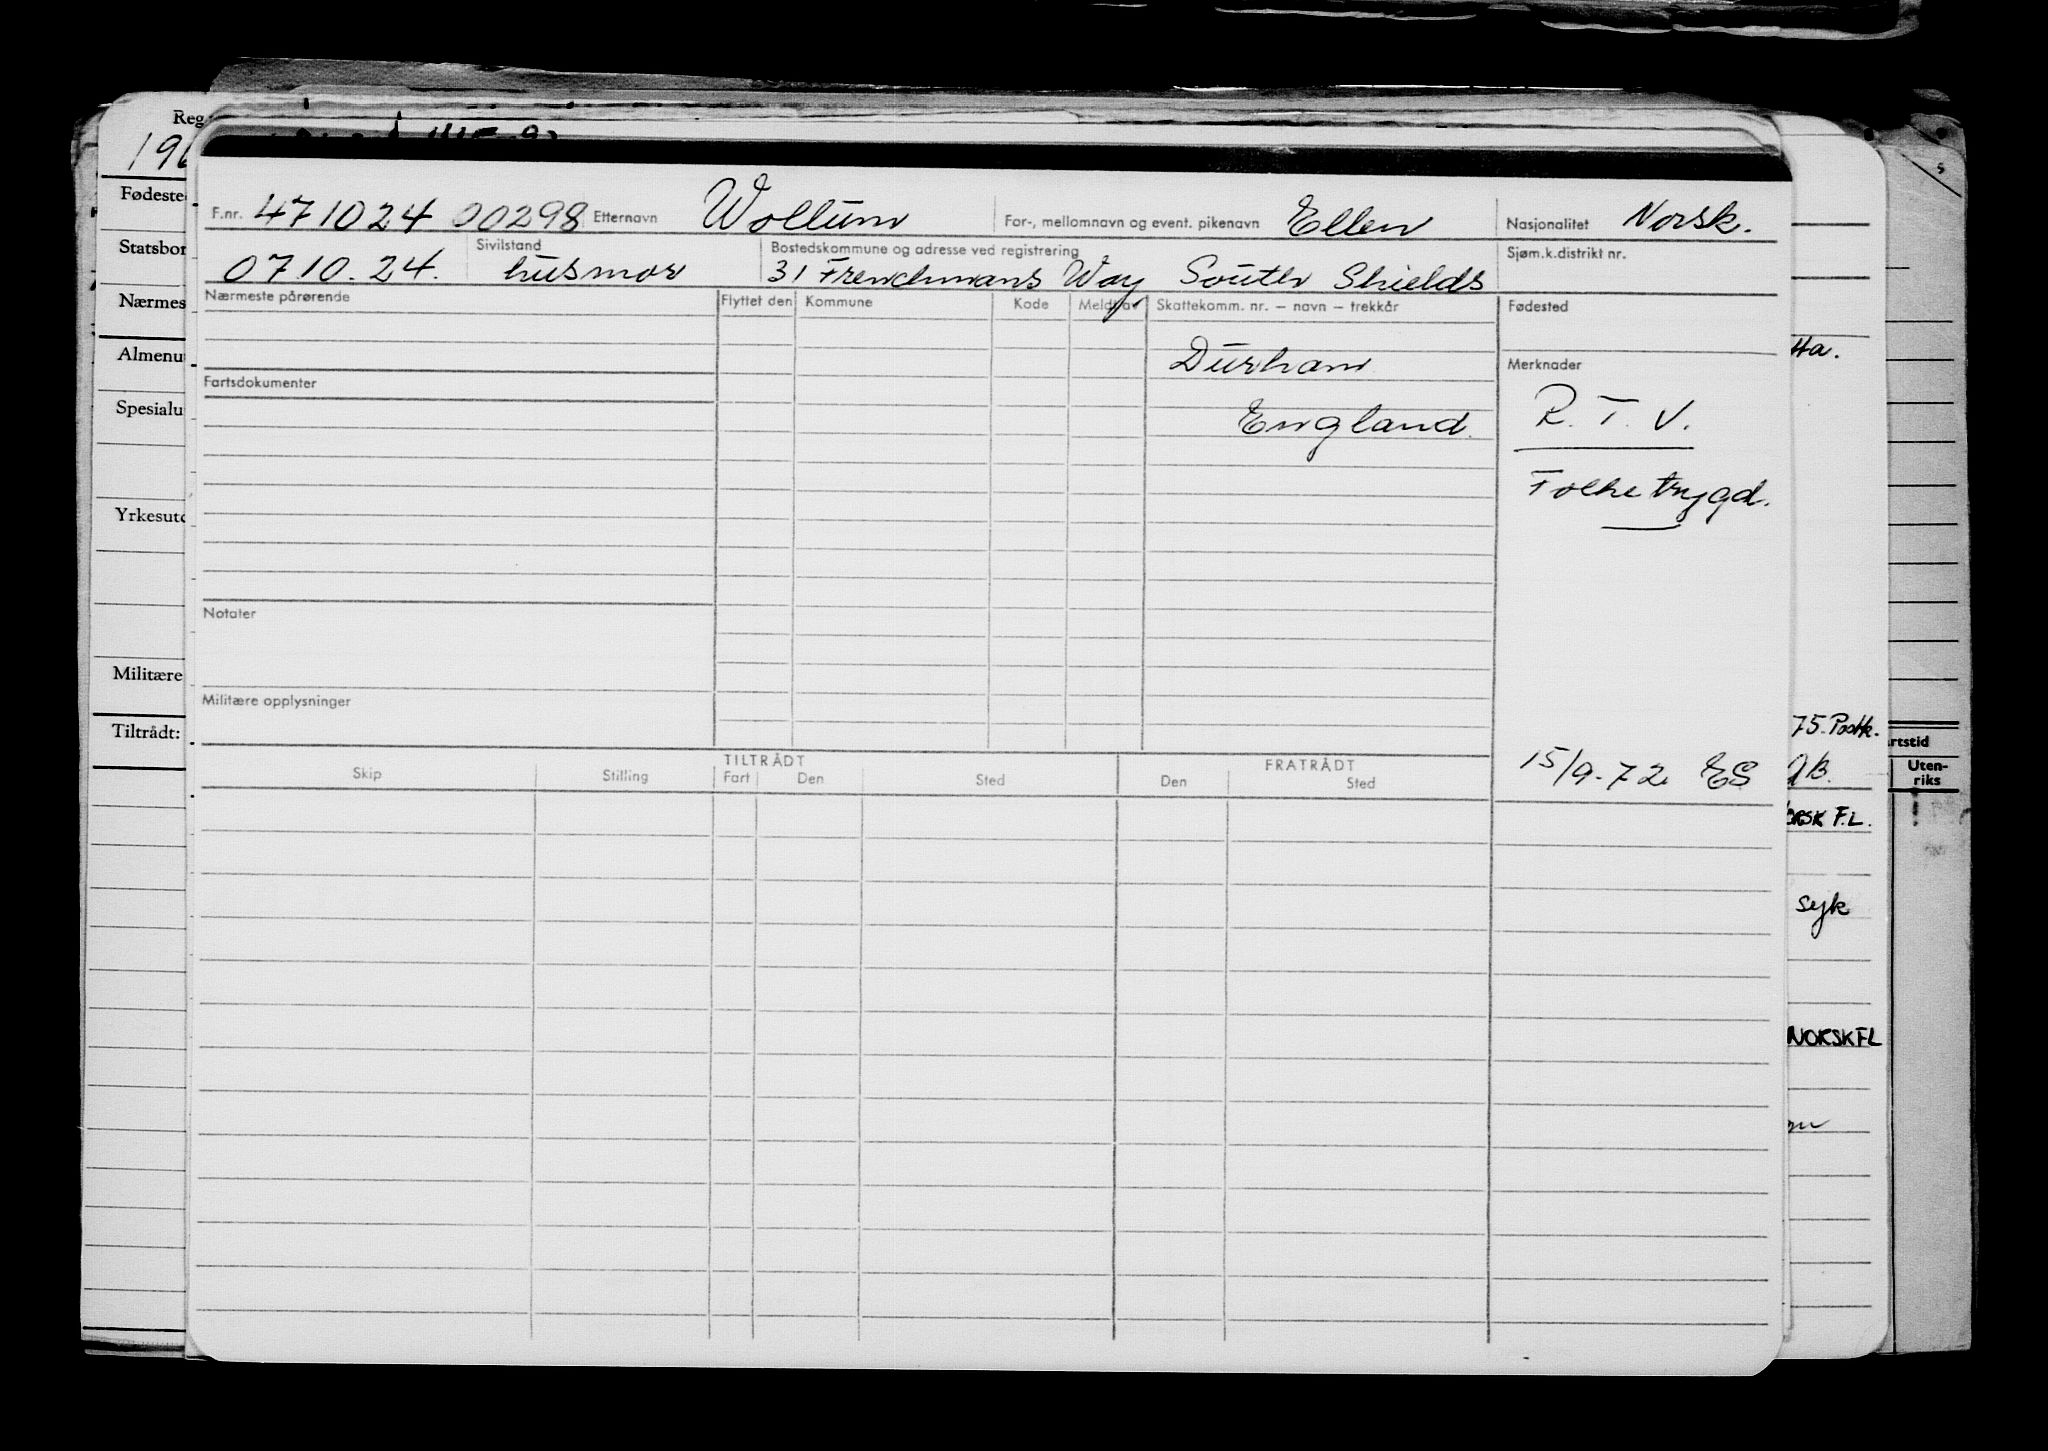 Reg
196
Fødeste
Statsbor
Nærmes
Almenu
Spesialu
Yrkesutd
Militære
Tiltrådt:
F.nr. 471024 00298 Etternavn Wollum For-, mellomnavn og event. pikenavn Ellen Nasjonalitet Norsk.
Sivilstand Bostedskommune og adresse ved registrering Sjøm.k.distrikt nr.
07.10.24. husmor 31 Frenchmans Way South Shields
Nærmeste pårørende Flyttet den Kommune Kode Meldt av Skattekomm. nr. – navn – trekkår Fødested
Durham
Fartsdokumenter Merknader
England.
R.T.V.
Folketrygd.
Notater
Militære opplysninger
15/9-72 ES
TILTRÅDT FRATRÅDT
Skip Stilling Fart Den Sted Den Sted
tta.
75. Postk.
rtstid
Uten-
riks
ORSK F.L.
syk
NORSK FL
s